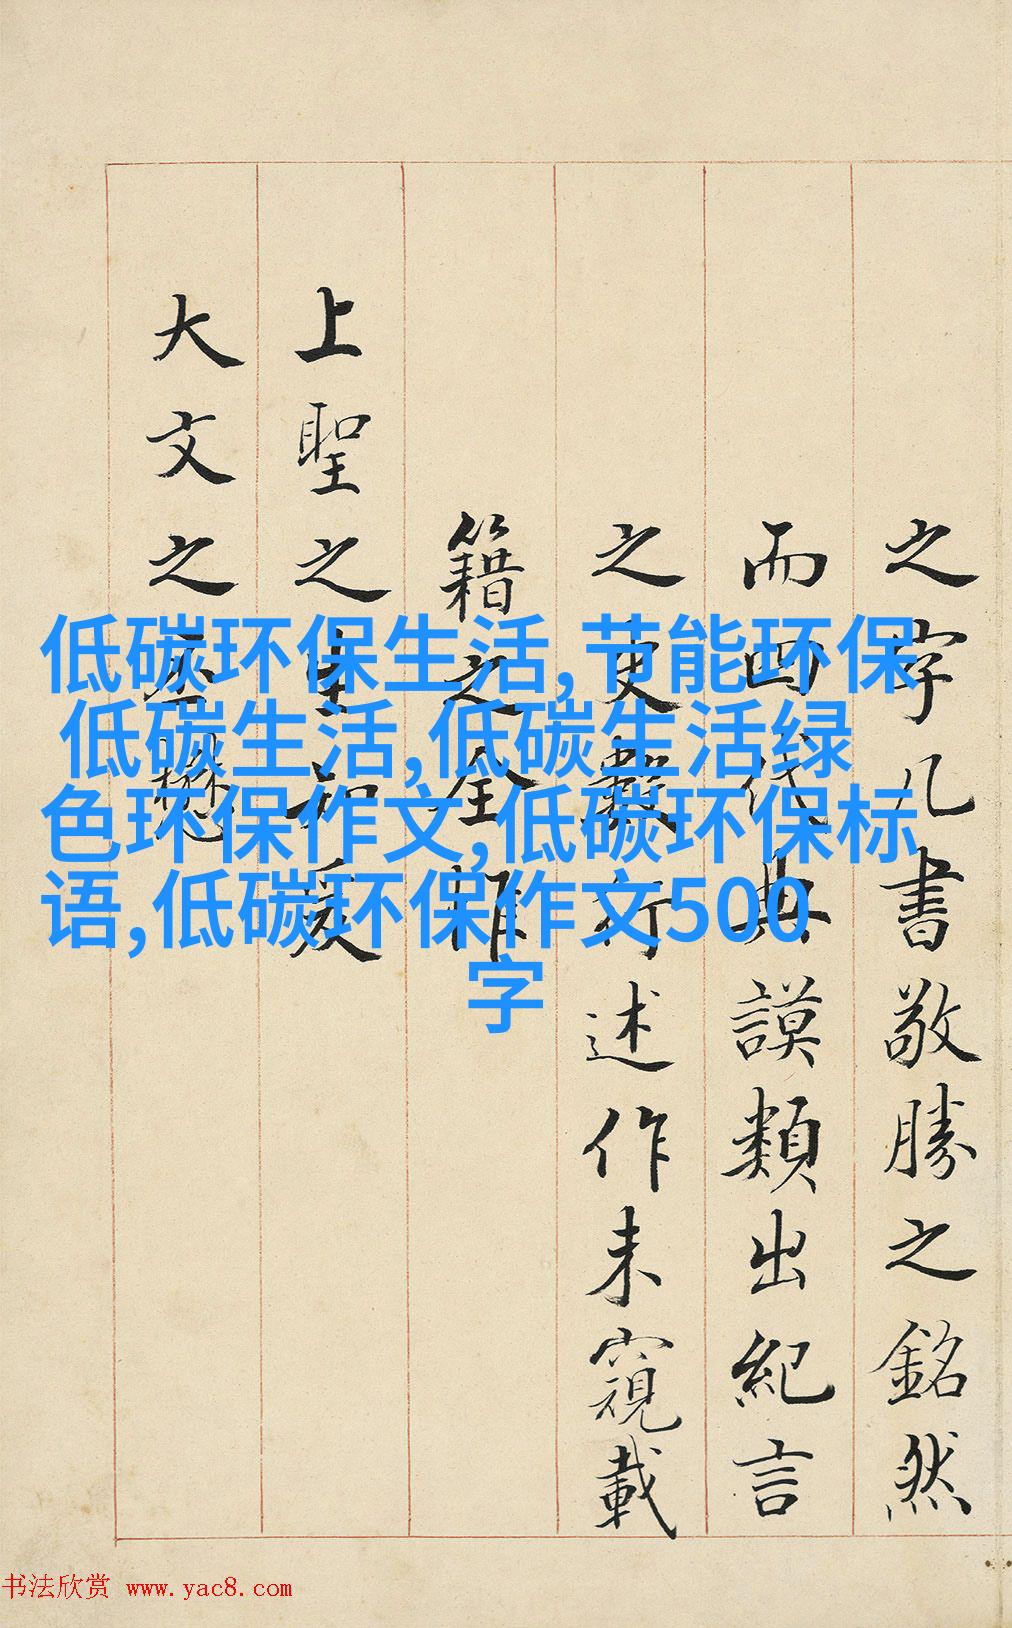 之字几書敬勝之銘然
而四代典謨類出紀言
之史數行述作未窺載
籍之全惟
上聖之生知爰
大文之丕懋
低碳环保生活,节能环保
低碳生活,低碳生活绿
色环保作文,低碳环保标
语,低碳环保作文500
字
书法欣赏 www.yac8.com